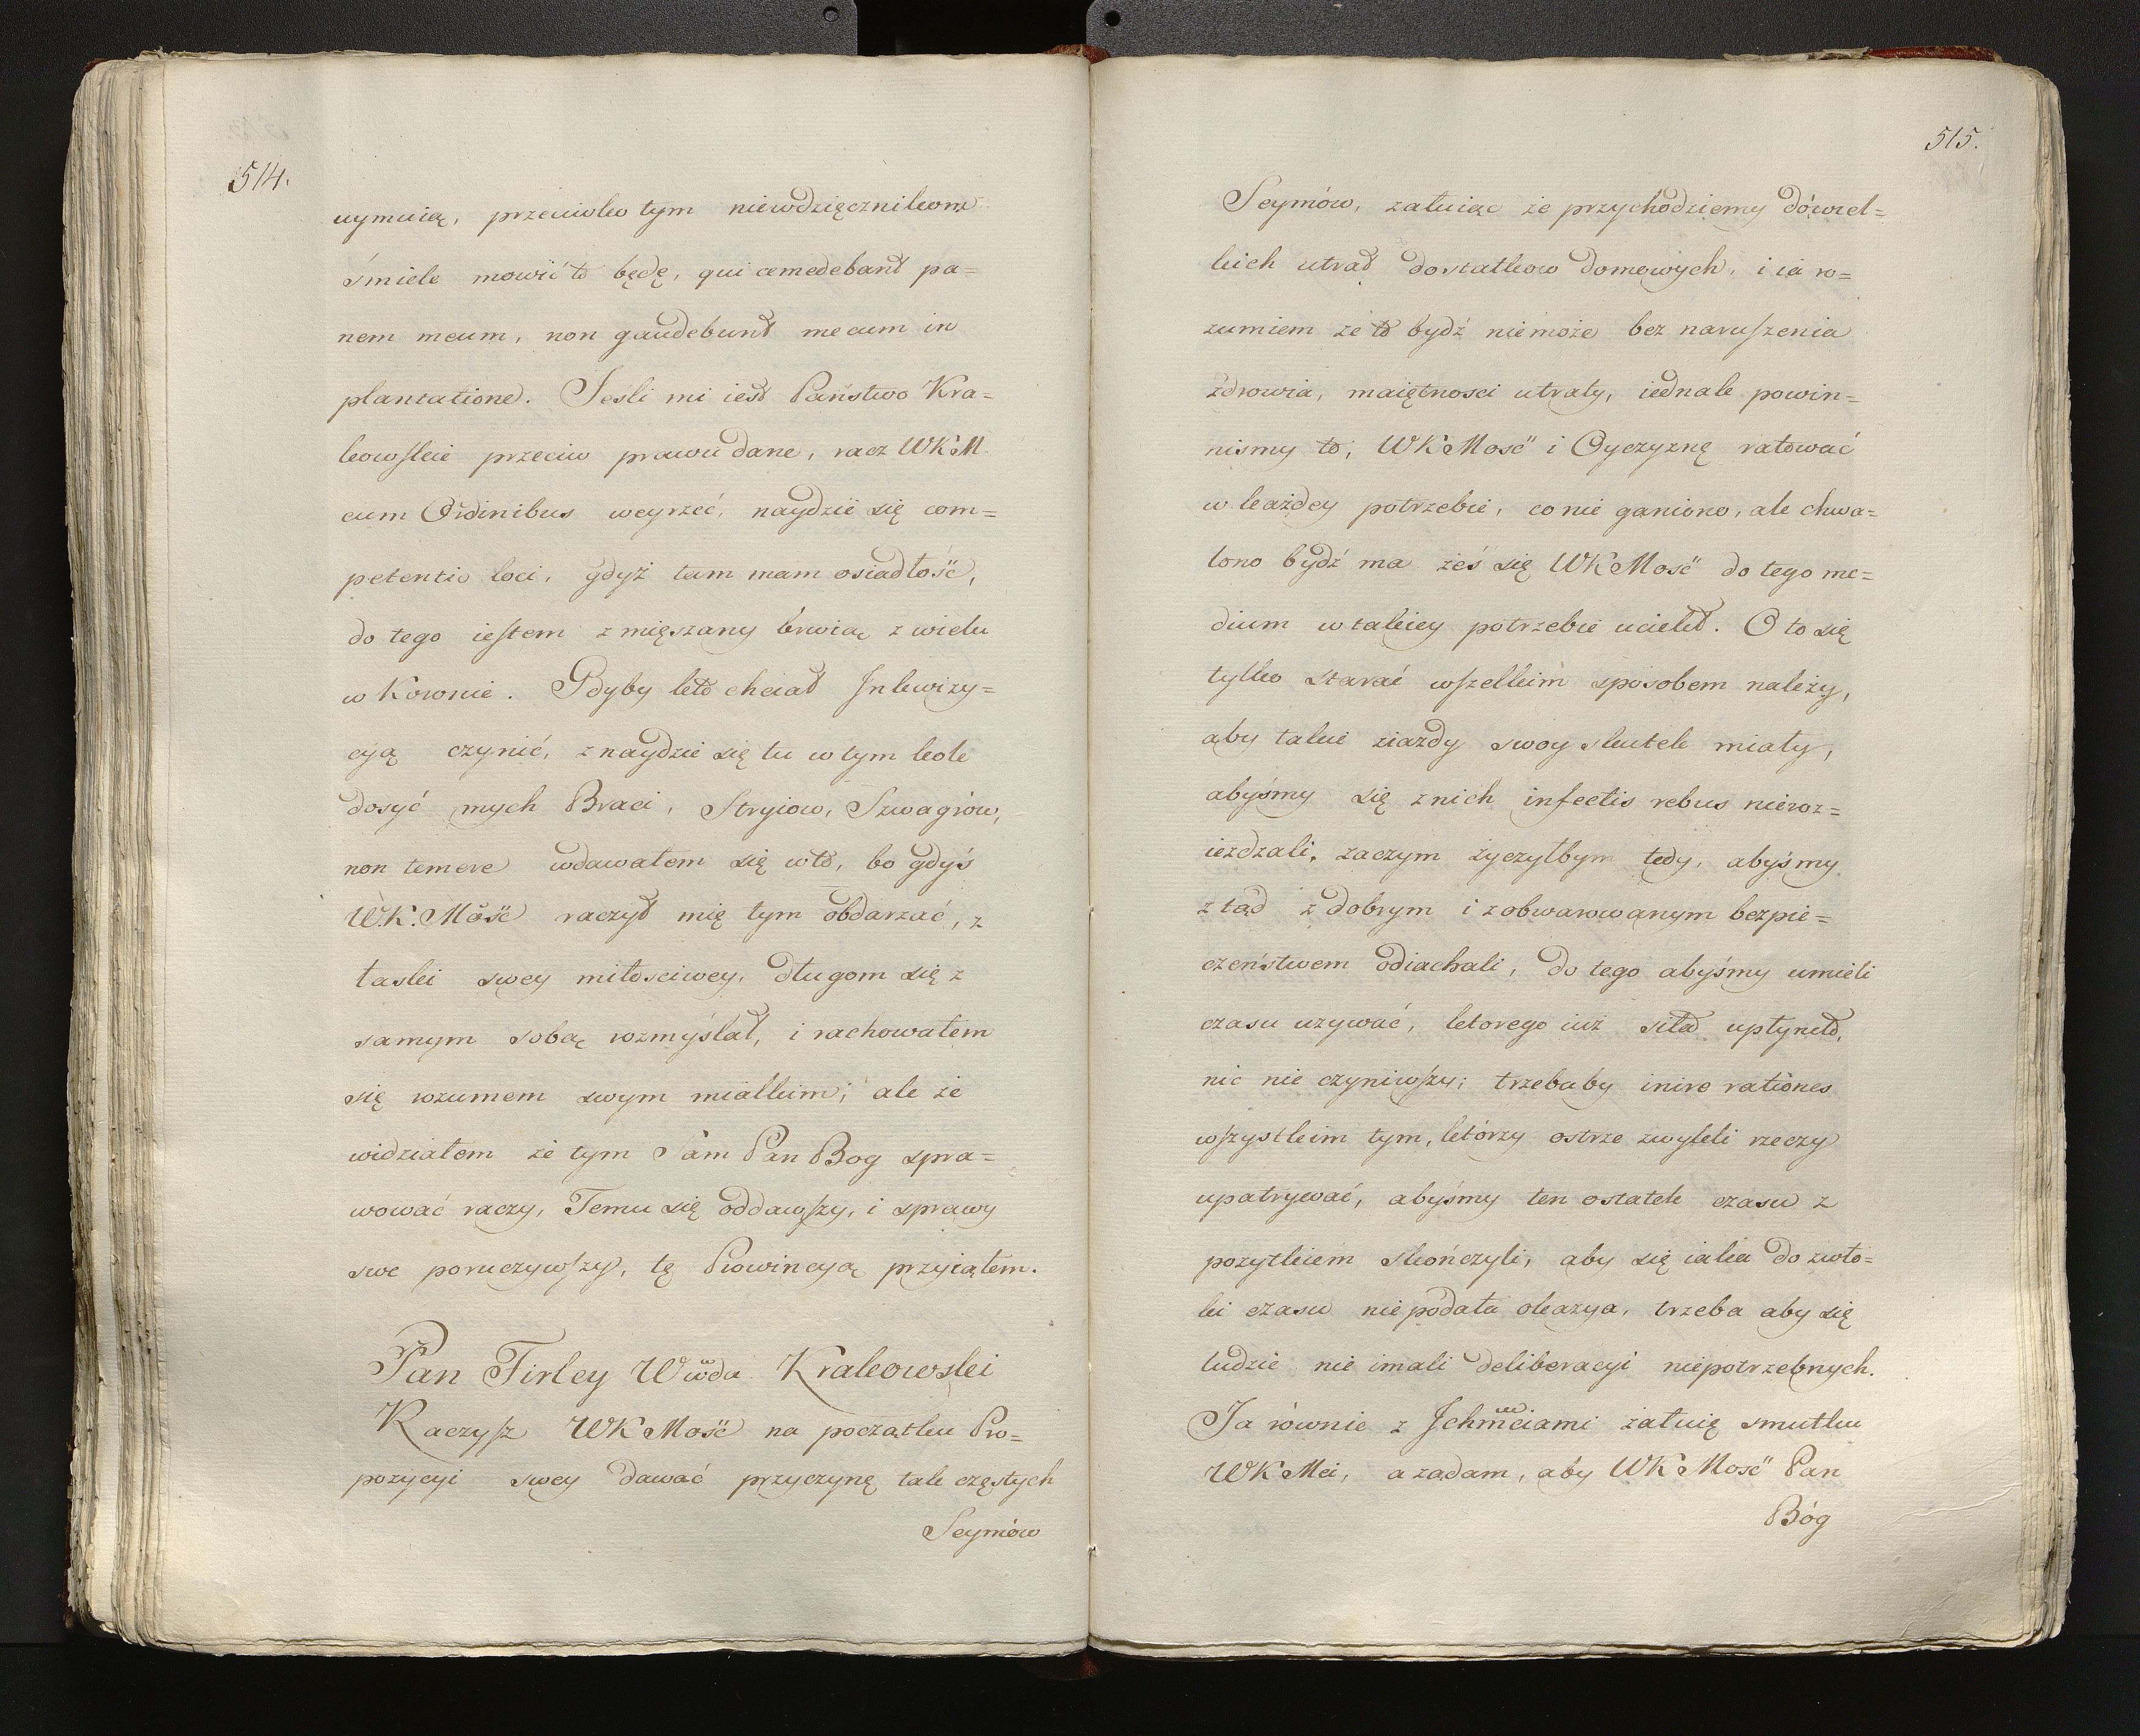 514.
uymuią, przeciwko tym niewdzięcznikom
śmiele mowić to będę, qui comedebant pa=
nem meum, non gaudebunt mecum in
plantatione. Jeśli mi iest Państwo Kra=
kowskie przeciw prawu dane, racz WKM
cum Ordinibus weyrzeć, naydzie się com=
petentio loci, gdyż tam mam osiadłość,
do tego iestem zmięszany krwią z wielu
w Koronie. Gdyby kto chciał Inkwizy=
cyą czynić, znaydzie się tu w tym kole
dosyć mych Braci, Stryiow, Szwagrow,
non temere wdawałem się w to, bo gdyś
W.K.Mość raczył mię tym obdarzać, z
łaski swey miłosciwey, długom się z
samym sobą rozmyślał, i rachowałem
się rozumem swym miałkim; ale że
widziałem że tym Sam Pan Bog spra=
wować raczy, Temu się oddawszy, i sprawy
swe poruczywszy, tę Prowincyą przyiąłem.
Pan Firley Wwda Krakowski
Raczysz WKMość na początku Pro=
pozycyi swey dawać przyczynę tak częstych
Seymów
515.
Seymów, załuiąc że przychodziemy do wiel=
kich utrad dostatkow domowych, i ia ro=
zumiem że to bydź niemoże bez naruszenia
zdrowia, maiętnosci utraty, iednak powin=
nismy to, WKMość i Oyczyznę ratować
w każdey potrzebie, co nie ganiono, ale chwa=
lono bydź ma żeś się WKMość do tego me=
dium w takiey potrzebie uciekł. O to się
tylko starać wszelkim sposobem należy,
aby takie ziazdy swoy skutek miały,
abyśmy się z nich infectis rebus nieroz=
ieżdzali, zaczym życzyłbym tedy, abyśmy
ztąd z dobrym i z obwarowanym bezpie=
czeństwem odiachali, do tego abyśmy umieli
czasu używać, ktorego iuż siła upłyneło,
nic nie czyniwszy; trzebaby inire rationes
wszystkim tym, którzy ostrze zwykli rzeczy
upatrywać, abyśmy ten ostatek czasu z
pożytkiem skończyli, aby się iaka do zwło=
ki czasu niepodała okazya, trzeba aby się
ludzie nie imali deliberacyi niepotrzebnych.
Ja równie z Ichmciami żałuię smutku
WKMci, a żądam, aby WKMość Pan
Bóg